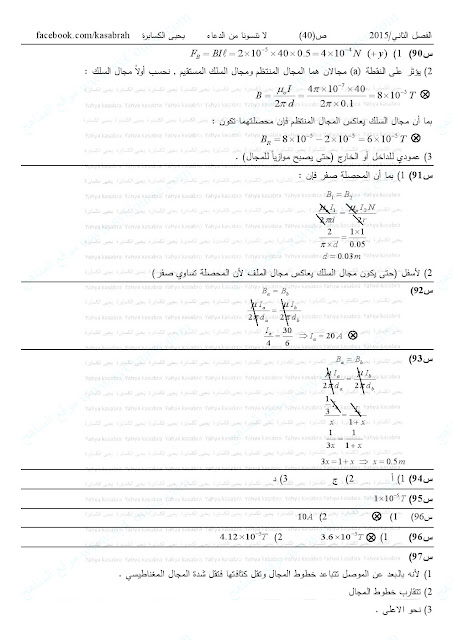 الفصل الثاني/2015 ص(40) لا تنسونا من الدعاء يحيى الكسابرة facebook.com/kasabrah
س90) 1) F_B = BIℓ = 2×10⁻⁵ × 40 × 0.5 = 4×10⁻⁴ N (+y)
2) يؤثر على النقطة (a) مجالان هما المجال المنتظم ومجال السلك المستقيم . نحسب أولاً مجال السلك :
B = μ₀I / 2π d = 4π×10⁻⁷ × 40 / 2π × 0.1 = 8×10⁻⁵ T ⊗
بما أن مجال السلك يعاكس المجال المنتظم فإن محصلتهما تكون :
B_R = 8×10⁻⁵ − 2×10⁻⁵ = 6×10⁻⁵ T ⊗
3) عمودي للداخل أو الخارج (حتى يصبح موازياً للمجال) .
س91) 1) بما أن المحصلة صفر فإن :
B₁ = B₂
μ₀I₁ / 2πd = μ₀I₂N / 2r
2 / π×d = 1×1 / 0.05
d = 0.03 m
2) لأسفل (حتى يكون مجال السلك يعاكس مجال الملف لأن المحصلة تساوي صفر)
س92) B_a = B_b
μ I_a / 2π d_a = μ I_b / 2π d_b
I_a / 4 = 30 / 6 ⇒ I_a = 20 A ⊗
س93) B_a = B_b
μ I_a / 2π d_a = μ I_b / 2π d_b
1 / 3x = 1 / 1+x
3x = 1 + x ⇒ x = 0.5 m
س94) 1) أ 2) ج 3) د
س95) 1×10⁻⁵ T
س96) 1) ⊗ 2) 10A
س96) 1) ⊗ 3.6×10⁻⁵ T 2) 4.12×10⁻⁵ T
س97)
1) لأنه بالبعد عن الموصل تتباعد خطوط المجال وتقل كثافتها فتقل شدة المجال المغناطيسي .
2) تتقارب خطوط المجال
3) نحو الاعلى .